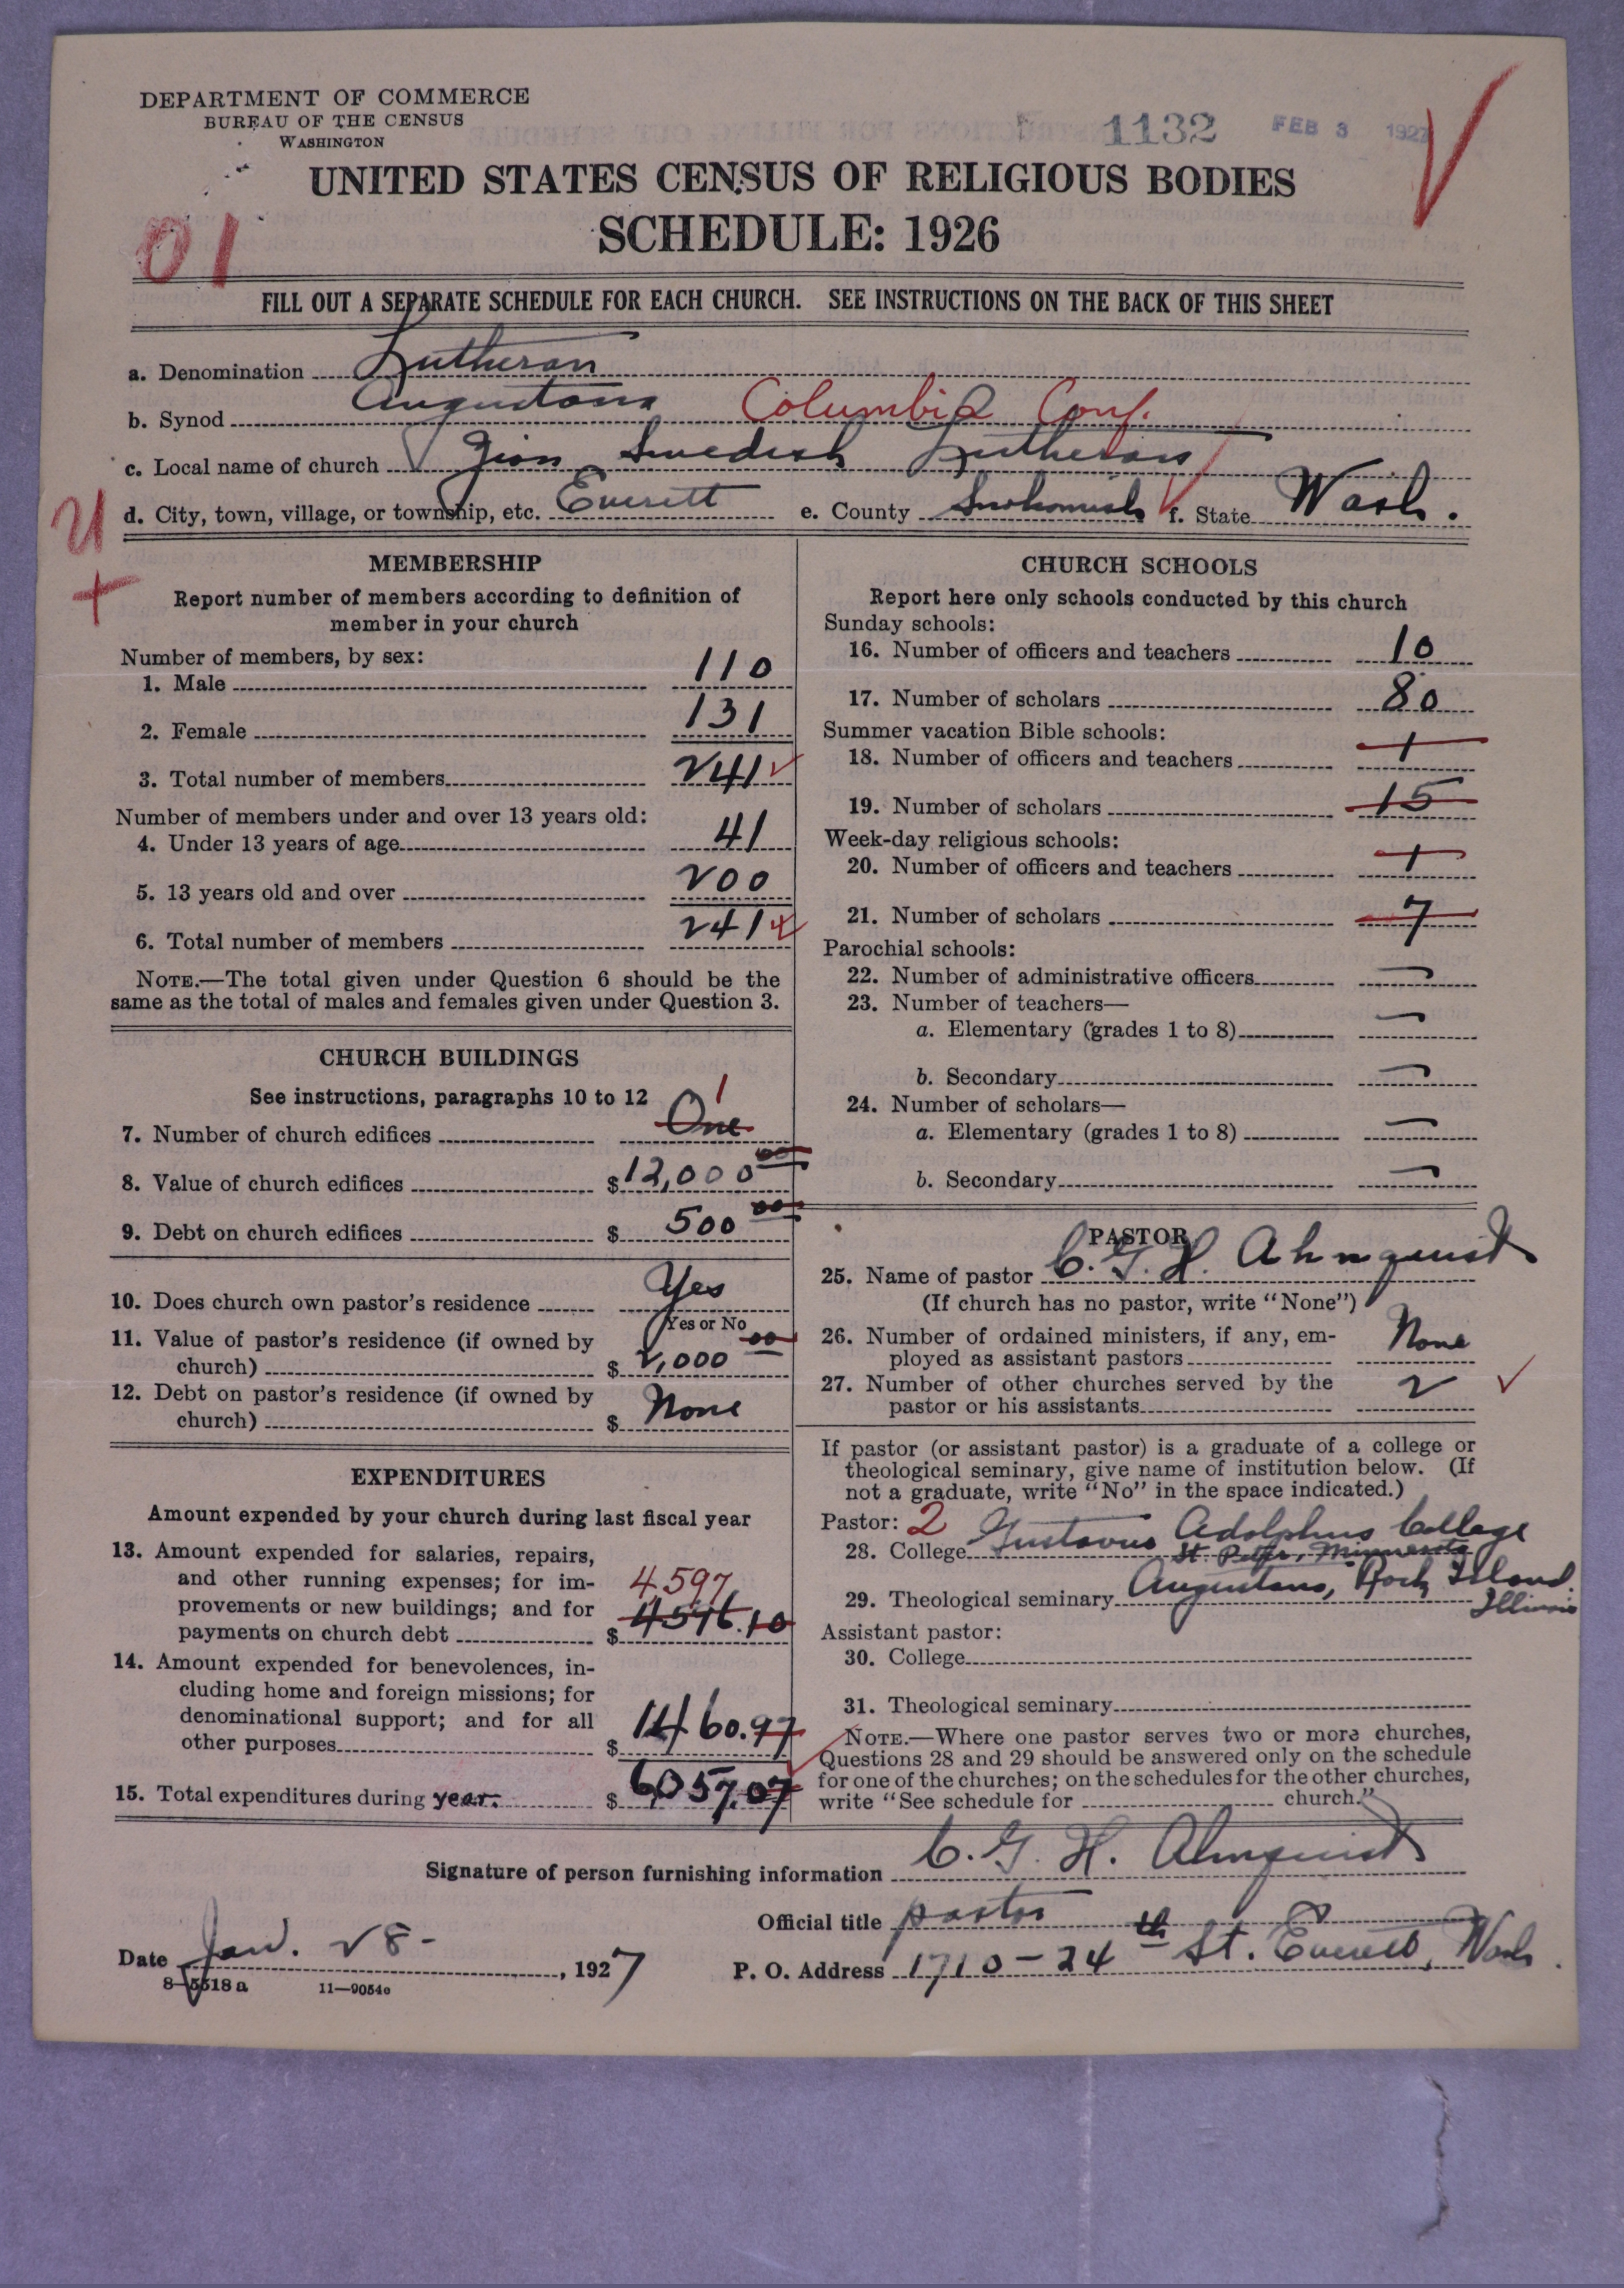 DEPARTMENT OF COMMERCE
BUREAU OF THE CENSUS
WASHINGTON
1132 FEB 3 1927
UNITED STATES CENSUS OF RELIGIOUS BODIES
SCHEDULE: 1926
01
FILL OUT A SEPARATE SCHEDULE FOR EACH CHURCH. SEE INSTRUCTIONS ON THE BACK OF THIS SHEET
a. Denomination Lutheran
b. Synod Augustana Columbia Conf.
c. Local name of church Zion Swedish Lutheran
d. City, town, village, or township, etc. Everett e. County Snohomish f. State Wash.
MEMBERSHIP
Report number of members according to definition of
member in your church
Number of members, by sex:
1. Male 110
2. Female 131
3. Total number of members 241
Number of members under and over 13 years old:
4. Under 13 years of age 41
5. 13 years old and over 200
6. Total number of members 241
NOTE.—The total given under Question 6 should be the
same as the total of males and females given under Question 3.
CHURCH BUILDINGS
See instructions, paragraphs 10 to 12
1
7. Number of church edifices One
8. Value of church edifices $12,000 00
9. Debt on church edifices $ 500 00
10. Does church own pastor's residence Yes
Yes or No
11. Value of pastor's residence (if owned by
church) $ 2,000 00
12. Debt on pastor's residence (if owned by
church) $ None
EXPENDITURES
Amount expended by your church during last fiscal year
13. Amount expended for salaries, repairs,
and other running expenses; for im-
4,597
provements or new buildings; and for
payments on church debt $ 4596.10
14. Amount expended for benevolences, in-
cluding home and foreign missions; for
denominational support; and for all
other purposes $ 1460.97
15. Total expenditures during year. $ 6,057.07
CHURCH SCHOOLS
Report here only schools conducted by this church
Sunday schools:
16. Number of officers and teachers 10
17. Number of scholars 80
Summer vacation Bible schools:
18. Number of officers and teachers 1
19. Number of scholars 15
Week-day religious schools:
20. Number of officers and teachers 1
21. Number of scholars 7
Parochial schools:
22. Number of administrative officers —
23. Number of teachers—
a. Elementary (grades 1 to 8) —
b. Secondary —
24. Number of scholars—
a. Elementary (grades 1 to 8) —
b. Secondary —
PASTOR
25. Name of pastor C. G. H. Ahnquist
(If church has no pastor, write "None")
26. Number of ordained ministers, if any, em-
ployed as assistant pastors None
27. Number of other churches served by the
pastor or his assistants 2
If pastor (or assistant pastor) is a graduate of a college or
theological seminary, give name of institution below. (If
not a graduate, write "No" in the space indicated.)
Pastor: 2
28. College Gustavus Adolphus College
St. Peter, Minnesota
29. Theological seminary Augustana, Rock Island.
Illinois
Assistant pastor:
30. College
31. Theological seminary
NOTE.—Where one pastor serves two or more churches,
Questions 28 and 29 should be answered only on the schedule
for one of the churches; on the schedules for the other churches,
write "See schedule for church."
Signature of person furnishing information C. G. H. Ahnquist
Official title pastor
Date Jan. 28 - , 1927
P. O. Address 1710 - 24th St. Everett, Wash.
8-5518 a 11—9054o